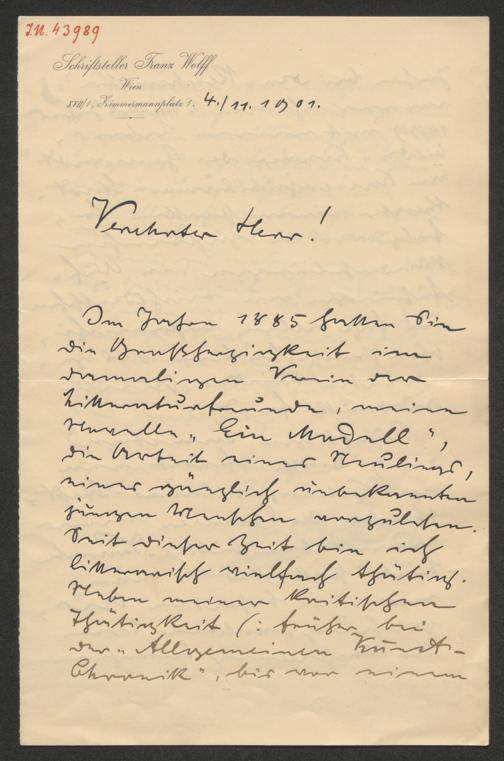 J.N. 43989
Schriftsteller Franz Wolff
Wien
XVII/1, Zimmermannplatz 1. 4./11. 1901.
Verehrter Herr!
Im Jahre 1885 hatten Sie
die Großherzigkeit im
damaligen Verein der
Litteraturfreunde, meine
Novelle „Ein Modell",
die Arbeit eines Neulings,
eines gänzlich unbekannten
jungen Menschen vorzulesen.
Seit dieser Zeit bin ich
litterarisch vielfach thätig.
Neben meiner kritischen
Thätigkeit (: früher bei
der „Allgemeinen Kunst-
Chronik", bis vor einem